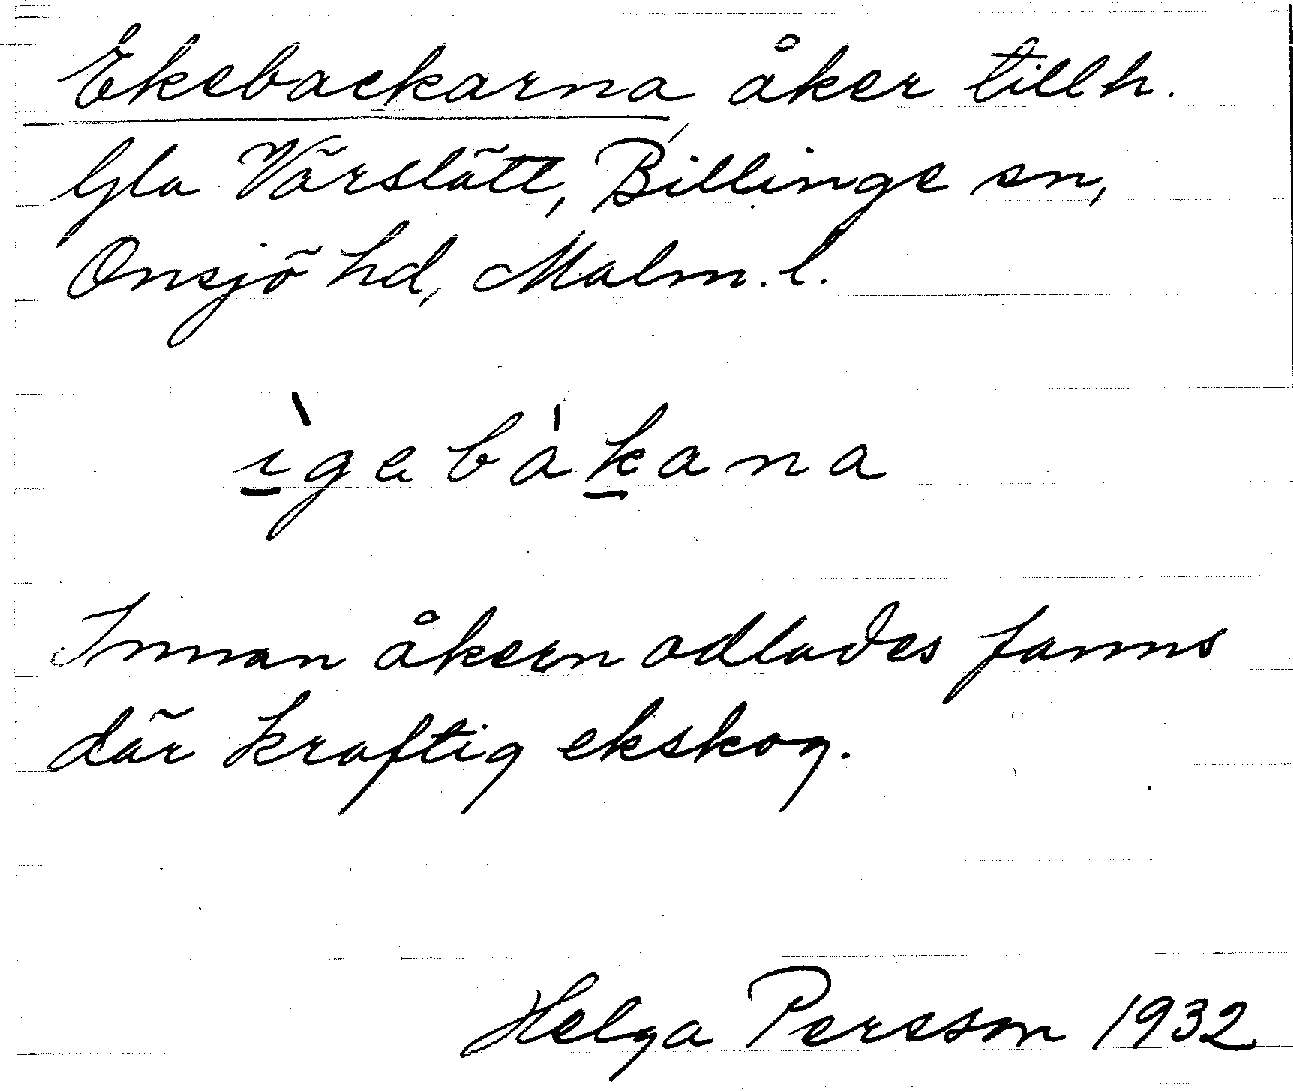 Ekebackarna åker tillh.
Gla Värslätt, Billinge sn,
Onsjö hd, Malm. l.
ìgebákana
Innan åkern odlades fanns
där kraftig ekskog.
Helga Persson 1932